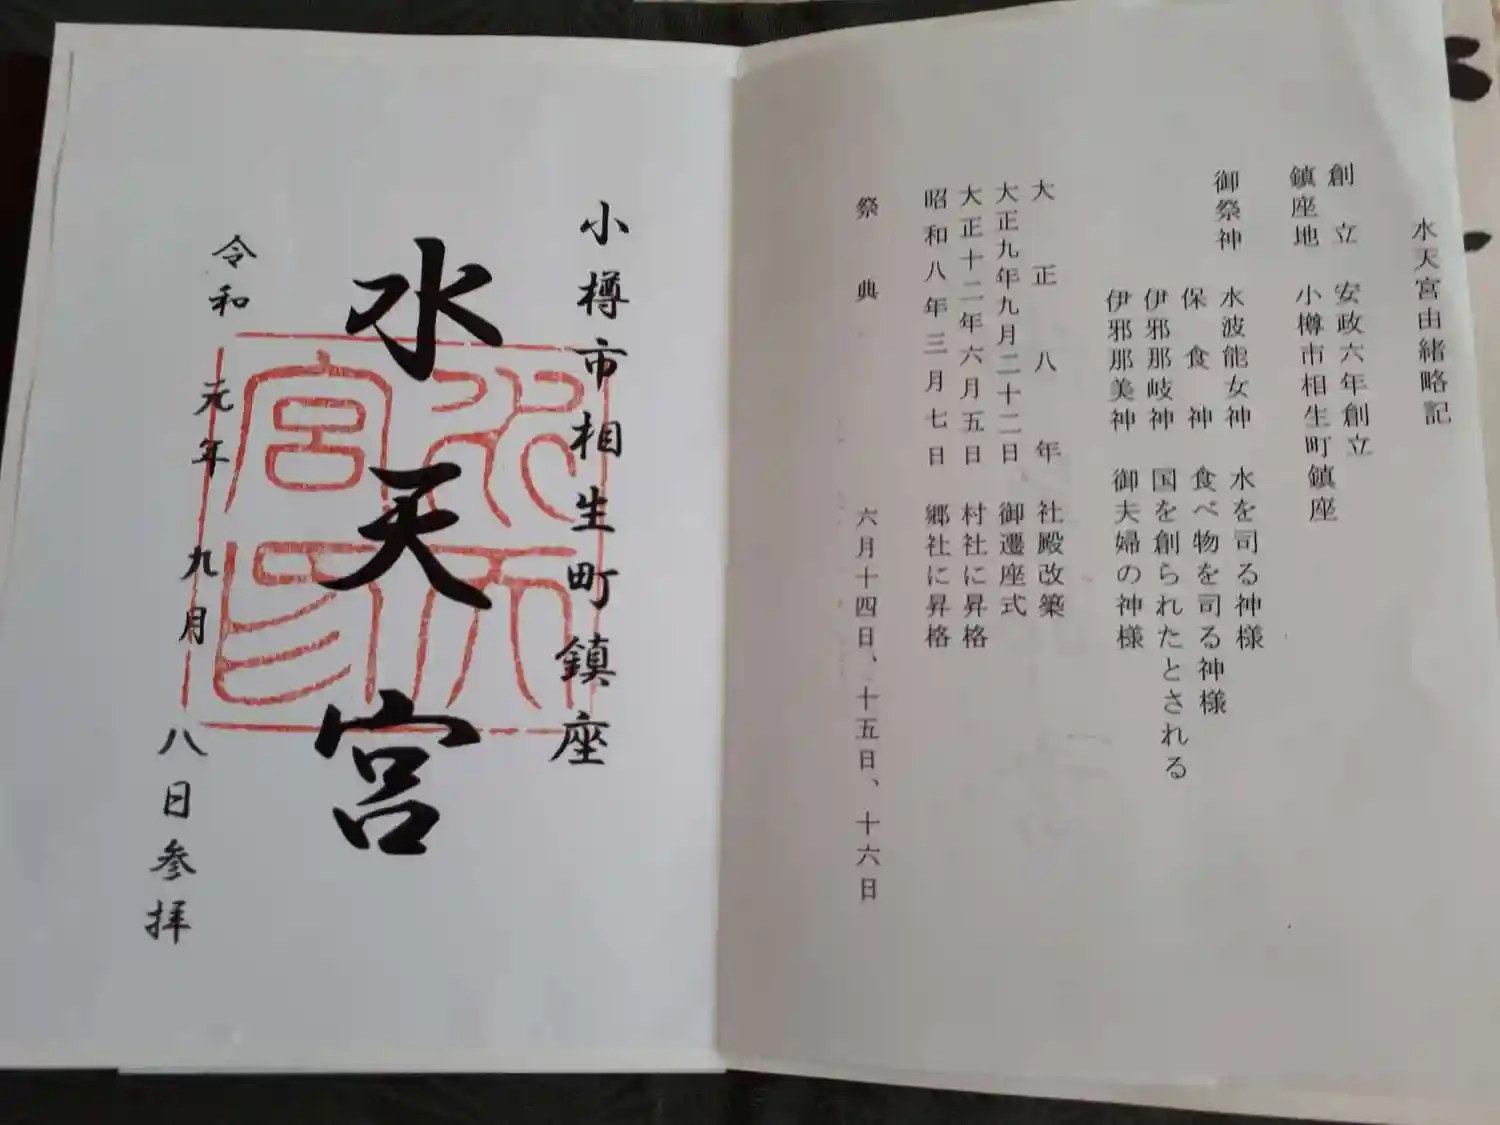 水天宮由緒略記
創立 安政六年創立
鎮座地 小樽市相生町鎮座
御祭神 水波能女神 水を司る神様
保食神 食べ物を司る神様
伊邪那岐神 国を創られたとされる
伊邪那美神 御夫婦の神様
大正八年 社殿改築
大正九年九月二十二日 御遷座式
大正十二年六月五日 村社に昇格
昭和八年三月七日 郷社に昇格
祭典 六月十四日、十五日、十六日
小樽市相生町鎮座
水天宮
水天宮印
令和元年九月八日参拝